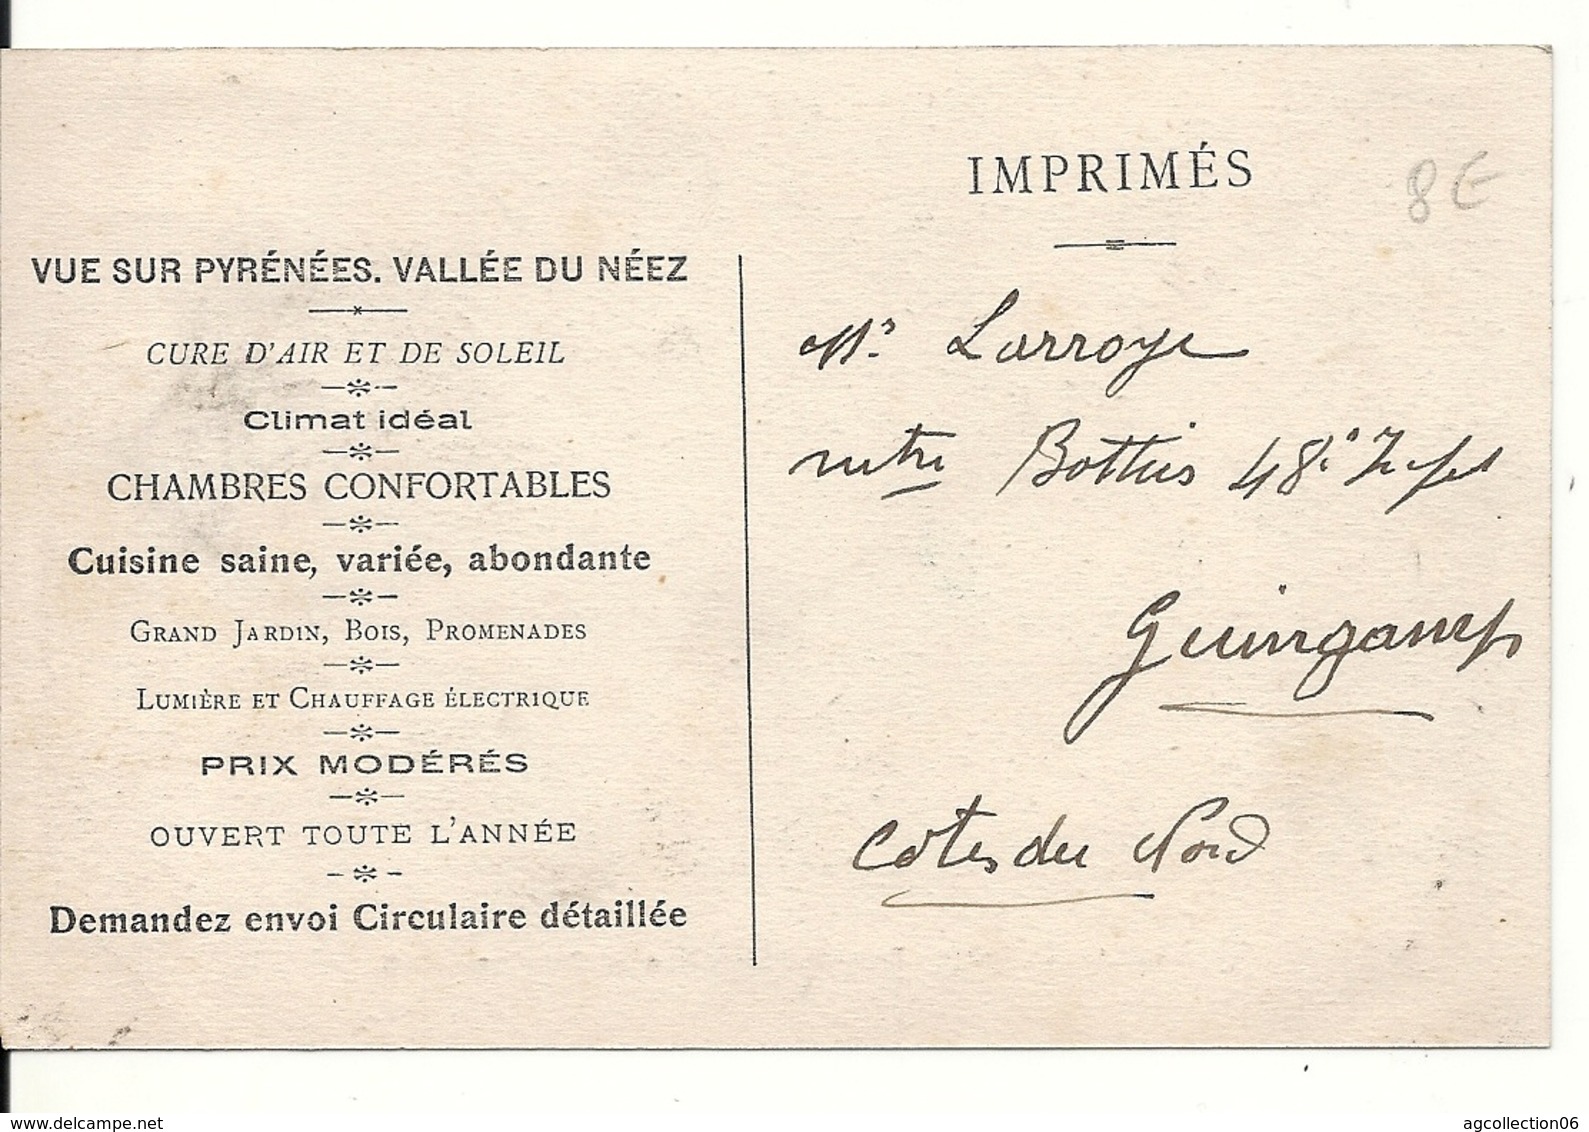 IMPRIMÉS
8€
VUE SUR PYRÉNÉES. VALLÉE DU NÉEZ
CURE D'AIR ET DE SOLEIL
Climat idéal
CHAMBRES CONFORTABLES
Cuisine saine, variée, abondante
GRAND JARDIN, BOIS, PROMENADES
LUMIÈRE ET CHAUFFAGE ÉLECTRIQUE
PRIX MODÉRÉS
OUVERT TOUTE L'ANNÉE
Demandez envoi Circulaire détaillée
Larroye
Bottier 48e
Guingamp
Côtes du Nord
www.delcampe.net
agcollection06